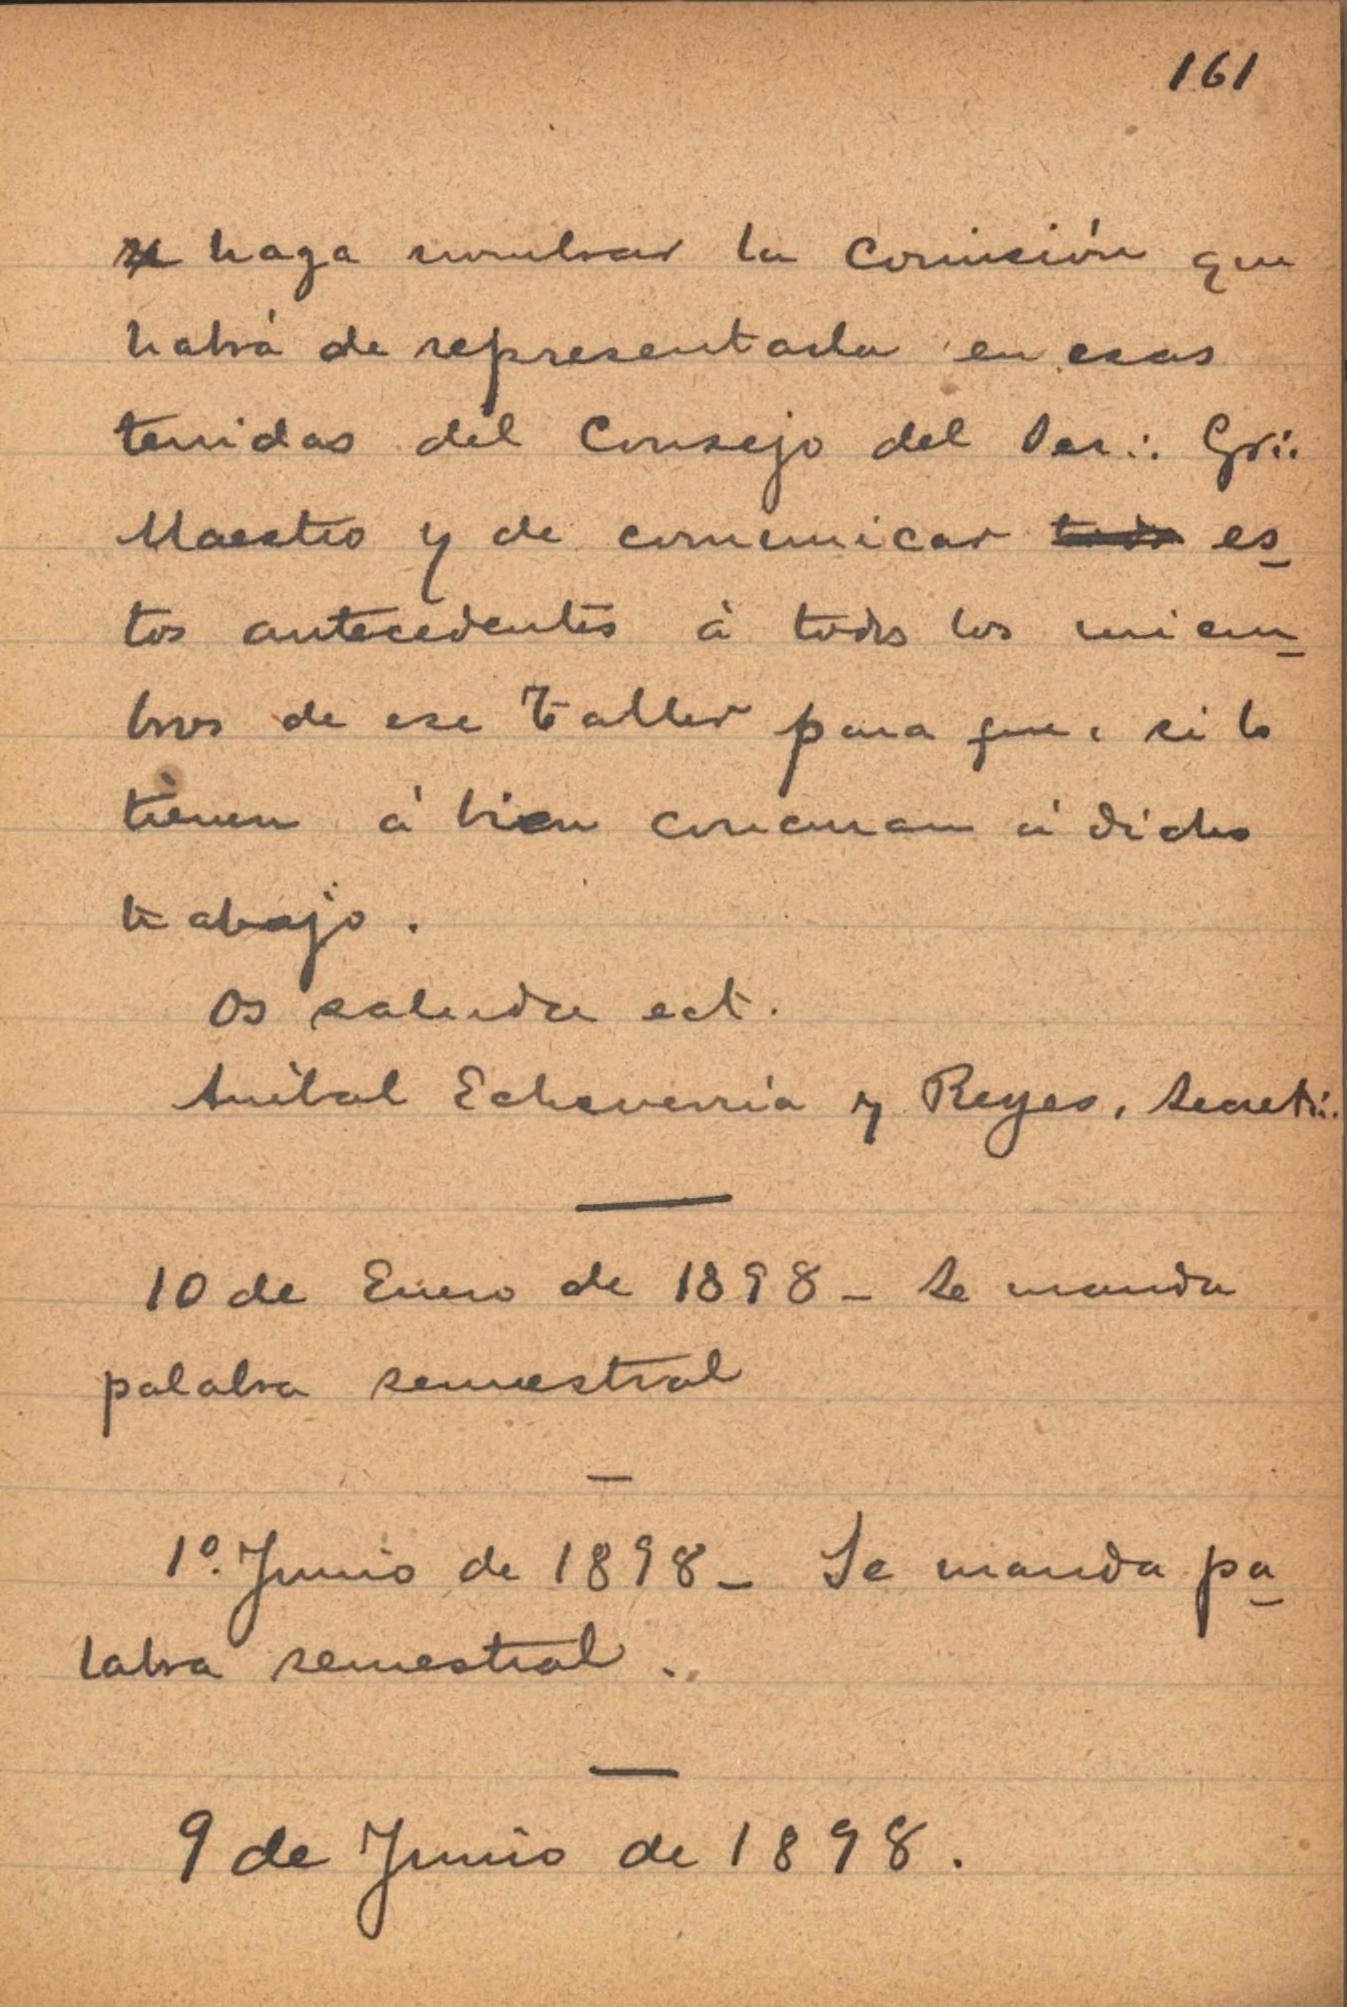 161
se haga nombrar la Comisión que
habrá de representarla en esas
tenidas del Consejo del Ser∴ Gr∴
Maestro y de comunicar todo es_
tos antecedentes á todos los miem_
bros de ese Taller para que, si lo
tienen á bien concurran á dichos
trabajo.
Os saluda ect.
Anibal Echeverría y Reyes, Secret∴
10 de Enero de 1898 _ Se manda
palabra semestral
1º. Junio de 1898 _ Se manda pa_
labra semestral.
9 de Junio de 1898.